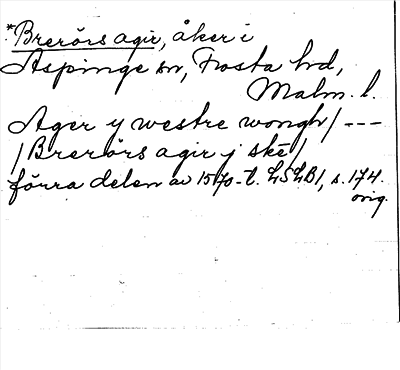 *Brerörs agir, åker i
Aspinge sn, Frosta hd,
Malm. l.
Ager y westre wongh / ---
/ Brerörs agir j skē /
förra delen av 1570-t. LSLB 1, s. 174.
orig.